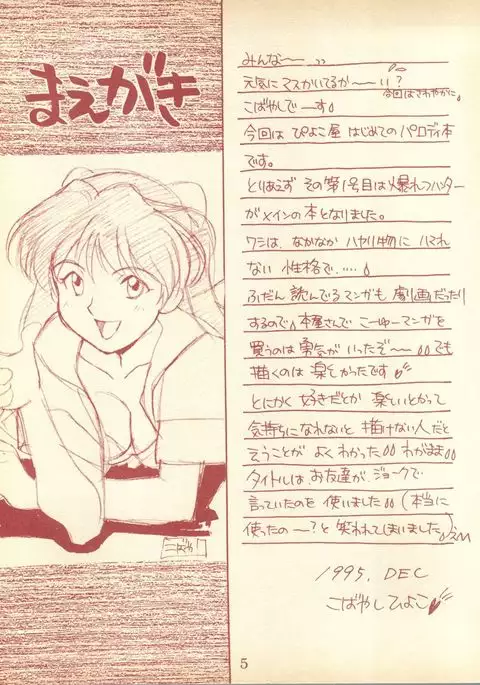 まえがき
みんな〜
元気にマスかいてるか〜い?
今回はさわやかに
こばやしでーす
今回は ぴよこ屋 はじめての パロディ本
です。
とりあえず その第1号目は爆れつハンター
がメインの本となりました。
ワシは、なかなか ハヤリ物に ハマれ
ない 性格で.....
ふだん 読んでるマンガも 劇画だったり
するので 本屋さんで こーゆーマンガを
買うのは 勇気が いったぞ〜 でも
描くのは 楽しかったです
とにかく 好きだとか 楽しいとかって
気持ちになれないと 描けない人だと
そうことが よくわかった わがまま
タイトルは、お友達が、ジョークで
言っていたのを 使いました(本当に
使ったの〜?と 笑われてしまいました)
1995, DEC
こばやしひよこ
こばや
5